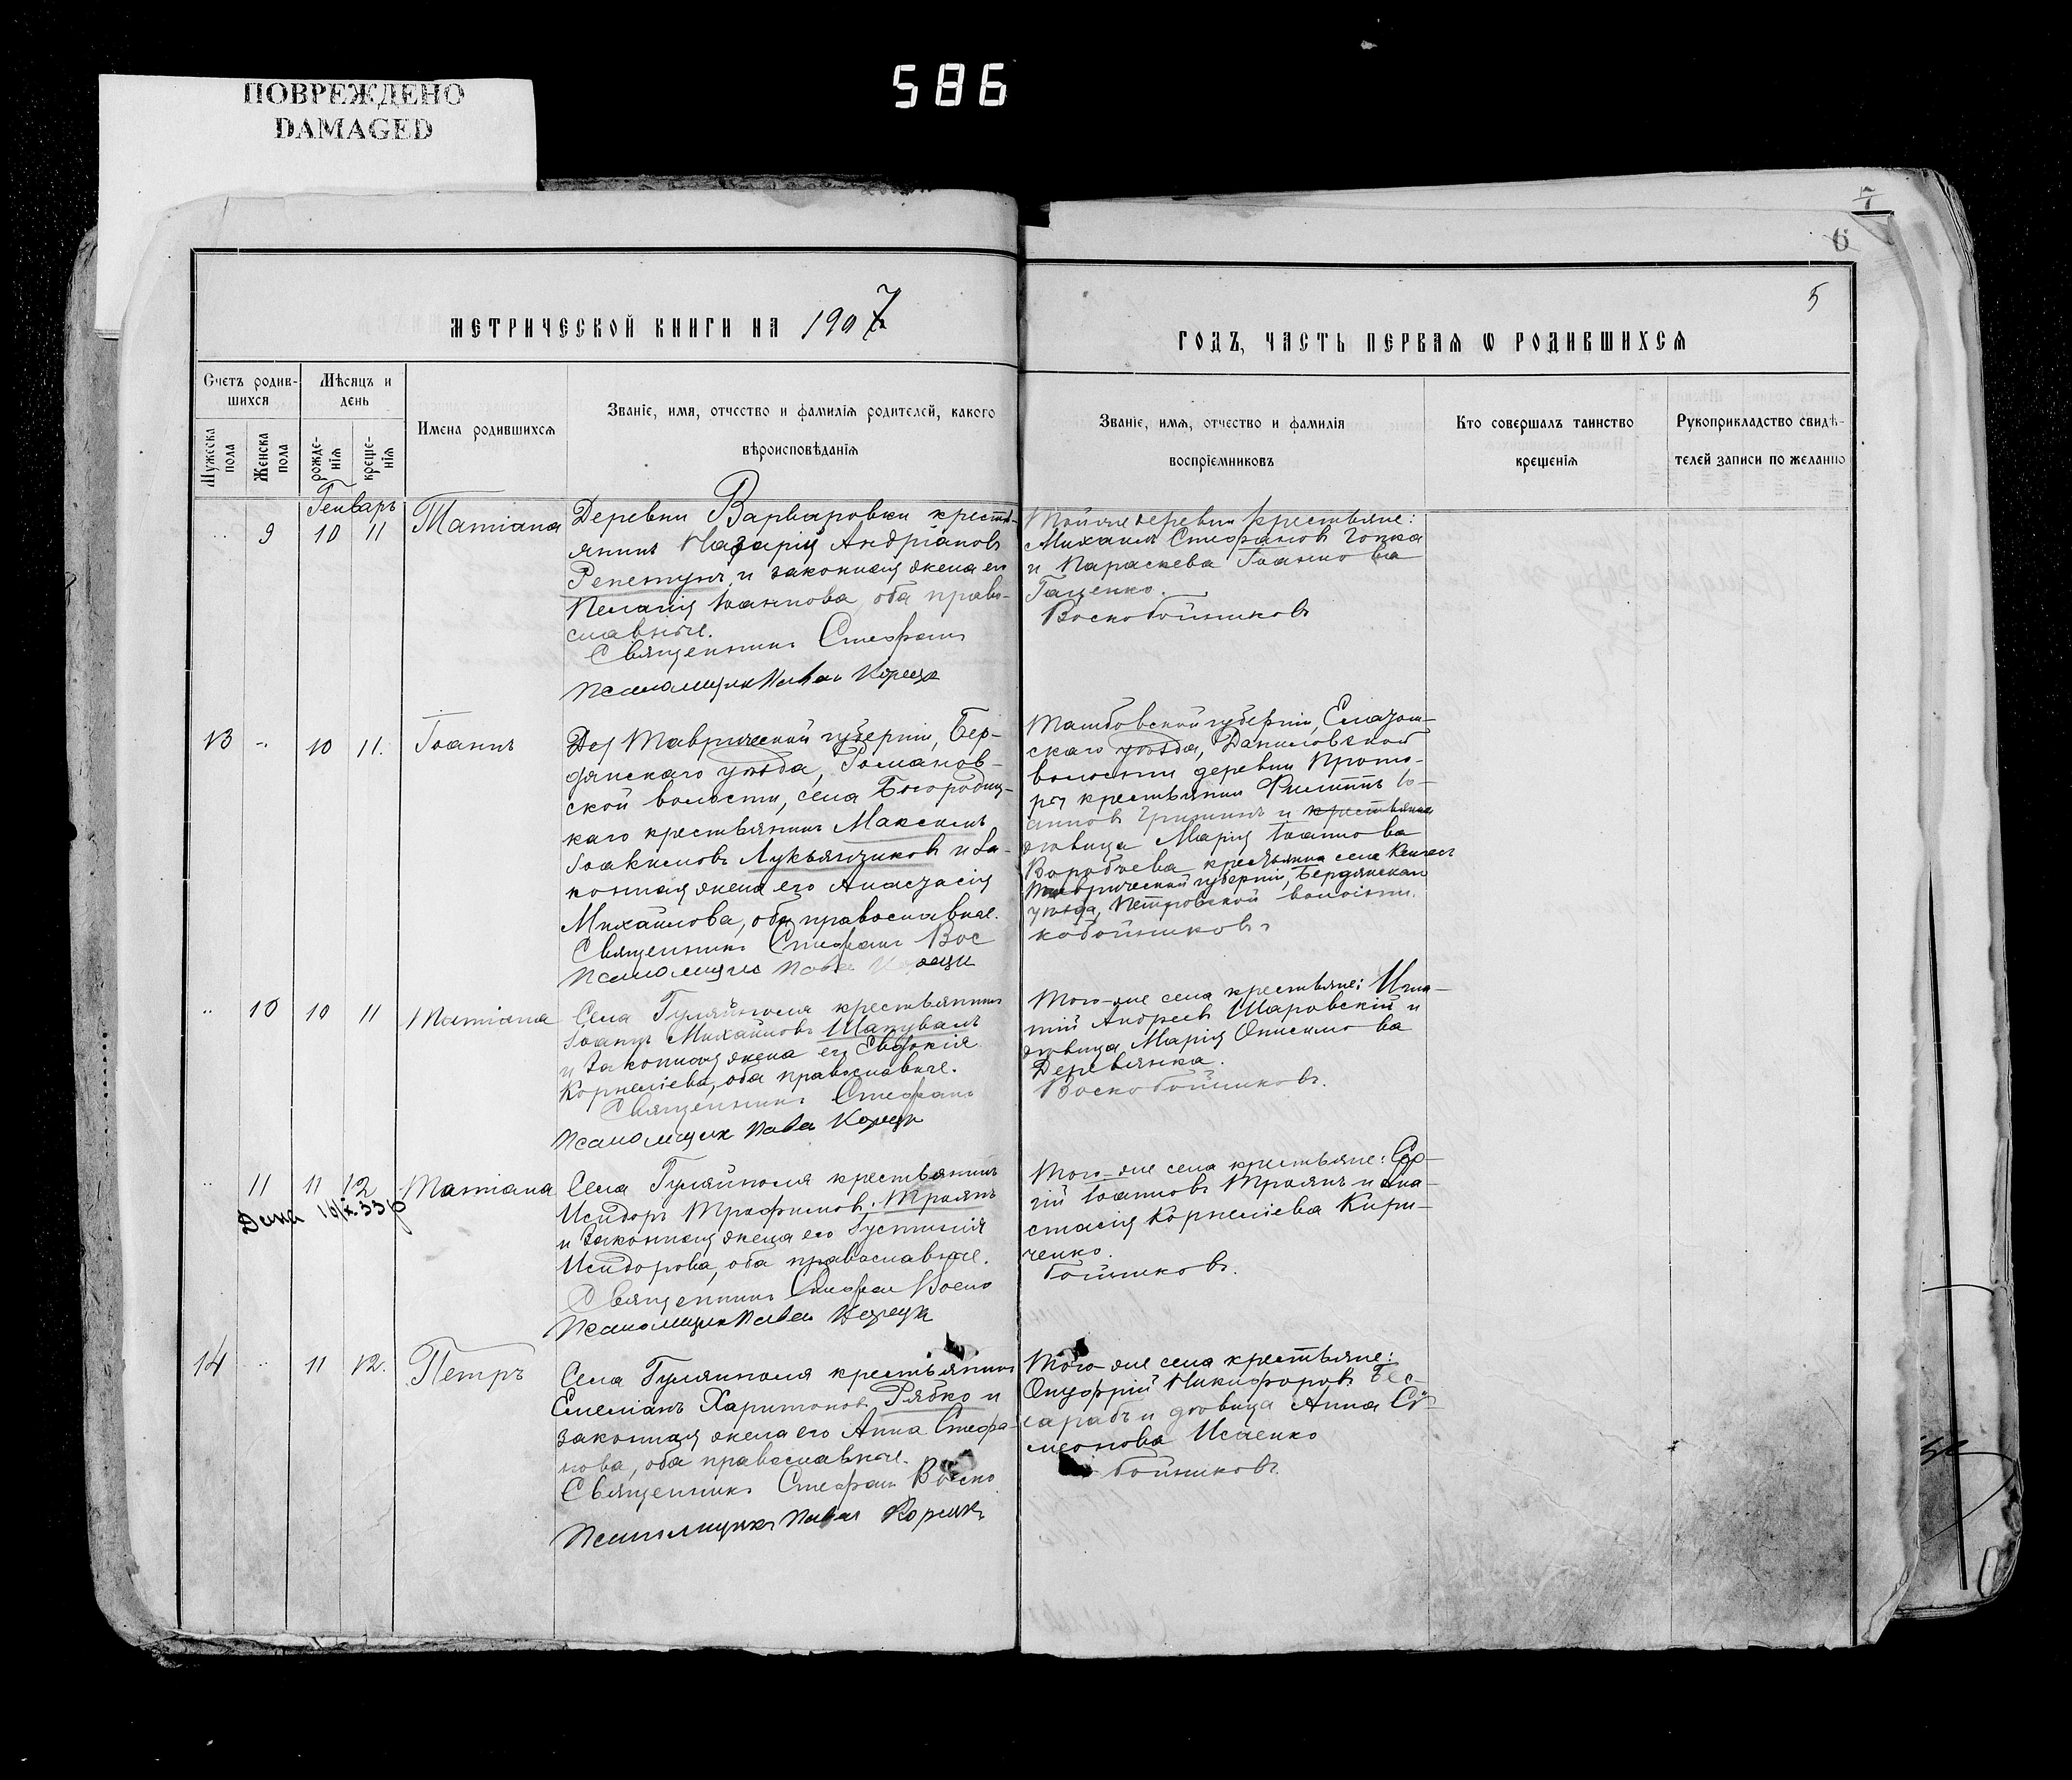 ПОВРЕЖДЕНО
DAMAGED
586
7
6
5
МЕТРИЧЕСКОЙ КНИГИ НА 1907
ГОДЪ, ЧАСТЬ ПЕРВАЯ Ѡ РОДИВШИХСЯ
Счетъ родив-
шихся
Мѣсяцъ и
день
Мужеска
пола
Женска
пола
рожде-
нія
креще-
нія
Имена родившихся
Званіе, имя, отчество и фамилія родителей, какого
вѣроисповѣданія
Званіе, имя, отчество и фамилія
воспріемниковъ
Кто совершалъ таинство
крещенія
Рукоприкладство свидѣ-
телей записи по желанію
Генварь
9 10 11 Татіана
Деревни Варваровки кресть-
янинъ Назарій Андріановъ
Репетунъ и законная жена его
Пелагія Іоаннова, оба право-
славные.
Священникъ Стефанъ
Псаломщикъ Павелъ Корецк
Той-же деревни крестьяне:
Михаилъ Стефановъ
и Параскева Іоаннова
Гаценко.
Воскобойниковъ
13 10 11. Іоаннъ
Таврической губерніи, Бер-
дянскаго уѣзда, Романов-
ской волости, села Богородиц-
каго крестьянинъ Максимъ
Іоакимовъ Лукьянчиковъ и за-
конная жена его Анастасія
Михайлова, оба православные.
Священникъ Стефанъ Вос
Псаломщикъ Павелъ
Тамбовской губерніи, Елатом-
скаго уѣзда, Даниловской
волости деревни
крестьянинъ Филиппъ Іо-
анновъ Гришинъ и крестьянка
дѣвица Марія Іоаннова
Воробьева крестьянка села
Таврической губерніи, Бердянскаго
уѣзда, Петровской волости.
кобойниковъ
10 10 11 Татіана
Села Гуляйполя крестьянинъ
Іоаннъ Михайловъ Шаповалъ
и законная жена его Евдокія
Корнеліева, оба православные.
Священникъ Стефанъ
Псаломщикъ Павелъ Корецк
Того-же села крестьяне: Игна-
тій Андреевъ Шаровскій и
дѣвица Марія Онисимова
Деревянка.
Воскобойниковъ.
11 11 12 Татіана
Дана
Села Гуляйполя крестьянинъ
Исидоръ Трофимовъ Троянъ
и законная жена его Іустинія
Исидорова, оба православные.
Священникъ Стефанъ Воско
Псаломщикъ Павелъ Корецк
Того-же села крестьяне: Сер-
гій Іоанновъ Троянъ и Ана-
стасія Корнеліева Кири-
ченко.
бойниковъ.
14 11 12. Петръ
Села Гуляйполя крестьянинъ
Емеліанъ Харитоновъ Рябко и
законная жена его Анна Стефа-
нова, оба православные.
Священникъ Стефанъ Воско
Псаломщикъ Павелъ Корецк
Того-же села крестьяне:
Онуфрій Никифоровъ Бес-
сарабъ и дѣвица Анна Сѵ-
меонова Исаенко
бойниковъ.